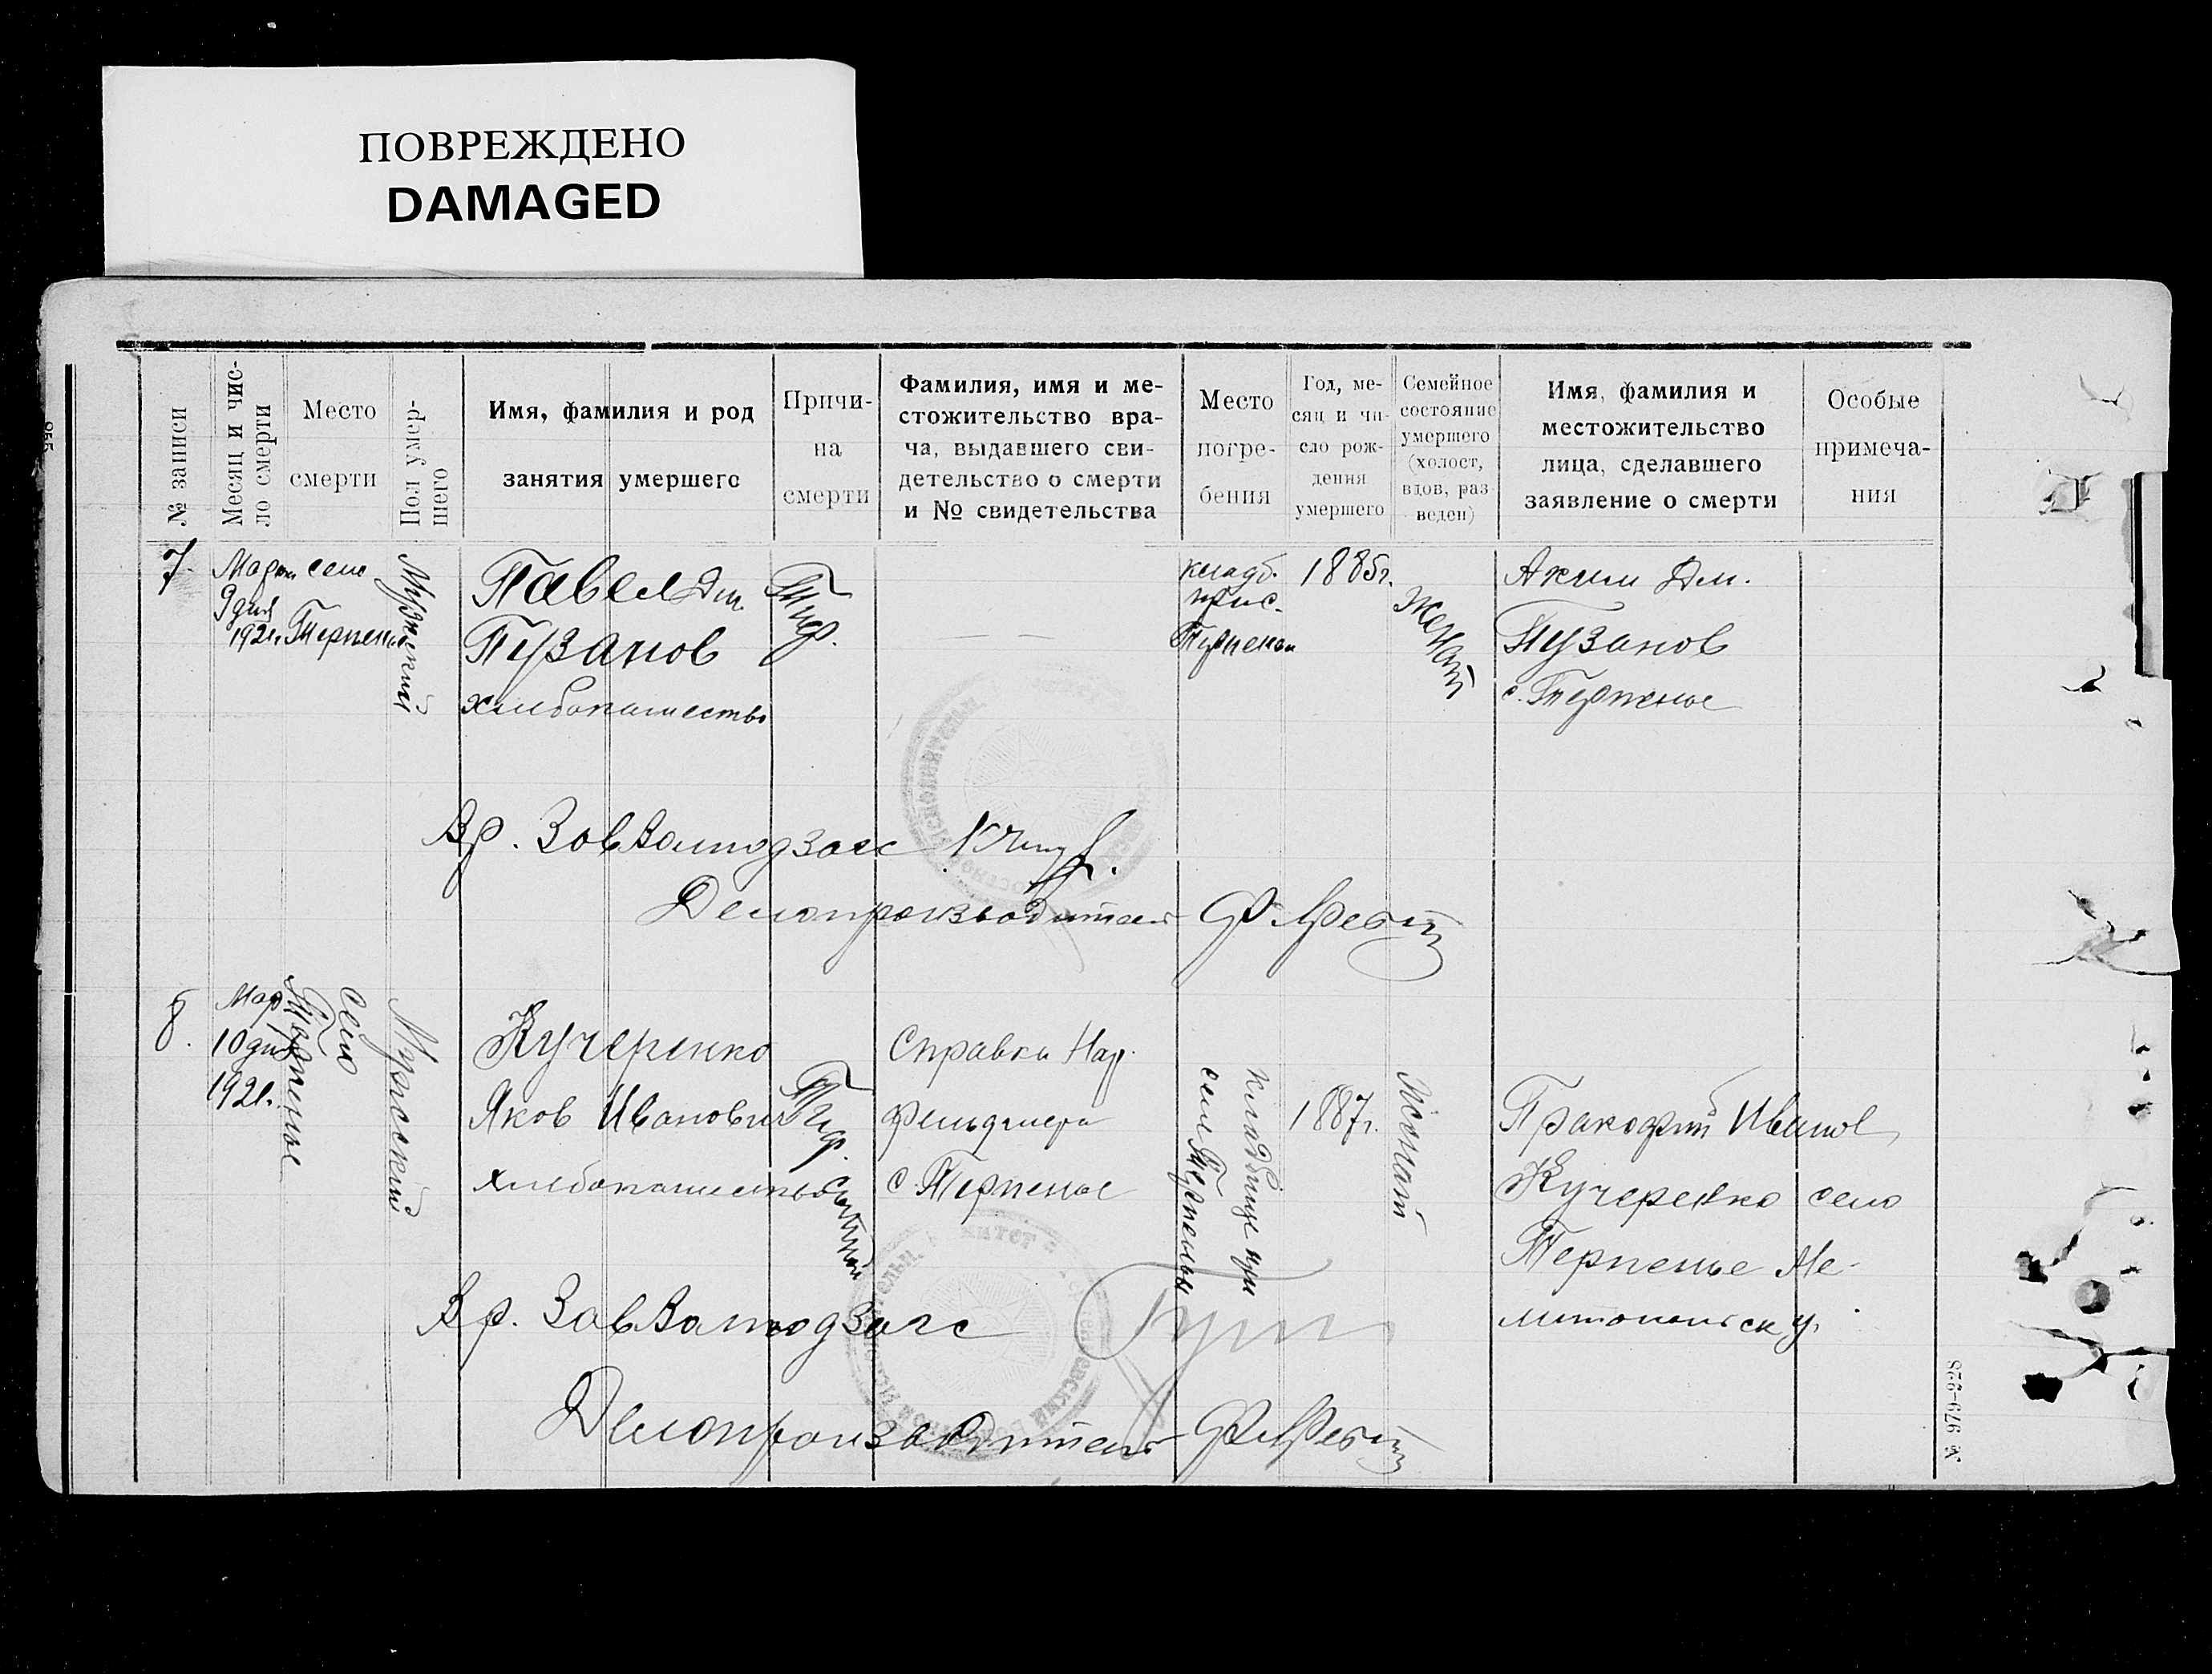 ПОВРЕЖДЕНО
DAMAGED
№ записи
Месяц и чис-
ло смерти
Место
смерти
Пол умер-
шего
Имя, фамилия и род
занятия умершего
Причи-
на
смерти
Фамилия, имя и ме-
стожительство вра-
ча, выдавшего сви-
детельство о смерти
и № свидетельства
Место
погре-
бения
Год, ме-
сяц и чи-
сло рож-
дения
умершего
Семейное
состояние
умершего
(холост,
вдов, раз-
веден)
Имя, фамилия и
местожительство
лица, сделавшего
заявление о смерти
Особые
примеча-
ния
7.
Марта
9 дня
192 г.
село
Терпенье
Мужской
Павел Дм.
Пузанов
хлебопашество
Тиф.
кладб.
при с.
Терпеньи
1885 г.
Женат
Аким Дм.
Пузанов
с. Терпенье
Вр. Зав Волподзагс
Делопроизводитель
8.
Мар
10 дня
192 г.
Село
Терпенье
Мужской
Кучеренко
Яков Иванович
хлебопашество
Тиф.
сыпной
Справка Нар.
фельдшера
с. Терпенье
кладбище при
селе Терпеньи
1887 г.
Женат
Пракофий Иванов
Кучеренко село
Терпенье Ме-
литопольск у.
Вр. Зав Волподзагс
Делопроизводитель
№ 979-928